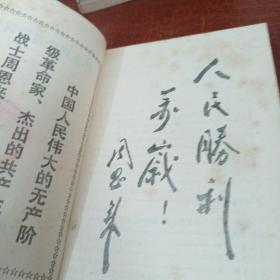 人民勝利
萬歲！
周恩来
中国人民伟大的无产阶
级革命家、杰出的共产
战士周恩来